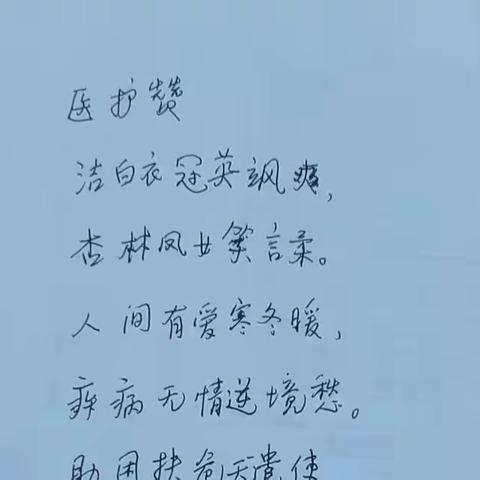 医护赞
洁白衣冠英飒爽,
杏林凤女笑言柔。
人间有爱寒冬暖,
疾病无情逆境愁。
助困扶危天遣使